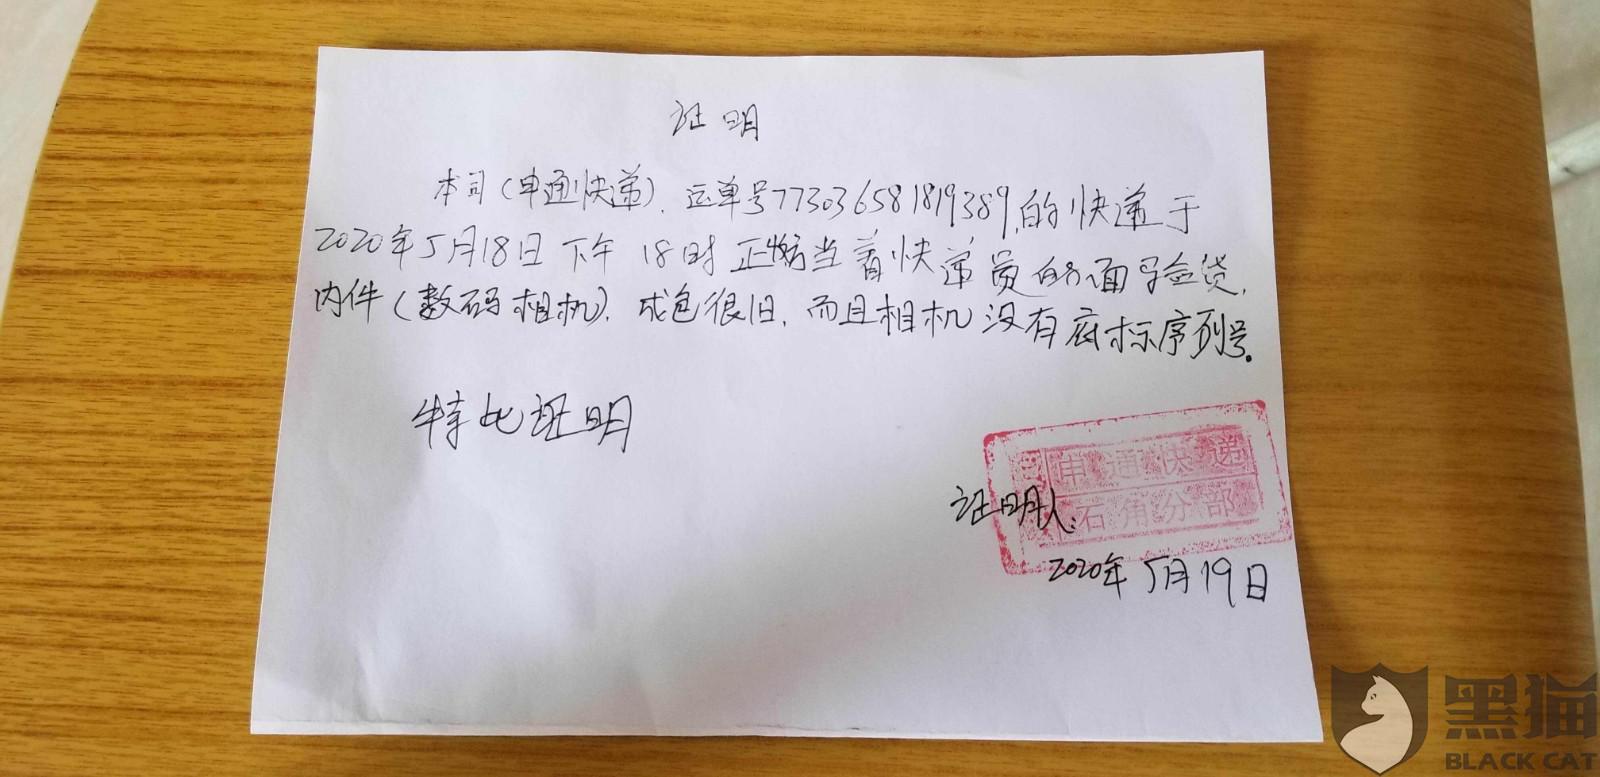 证明
本司(申通快递)、运单号773036581819389,的快递于
2020年5月18日下午18时正当着快递员的面验货,
内件(数码相机),成色很旧,而且相机没有底标序列号。
特此证明
申通快递
石角分部
证明人:
2020年5月19日
黑猫
BLACK CAT